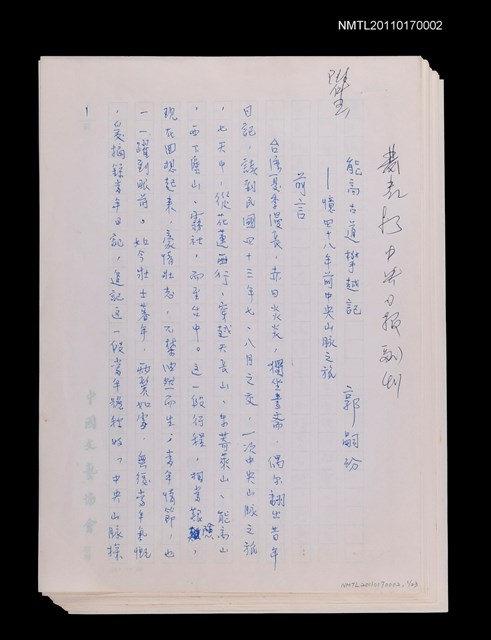 NMTL20110170002
發表於中央日報副刊
能高古道攀越記
郭嗣汾
——憶四十八年前中央山脈之旅
前言
台灣夏季漫長，赤日炎炎，獨坐書齋，偶尔翻出昔年
日記，談到民國四十三年七、八月之交，一次中央山脈之旅
，七天中，從花蓮西行，穿越天長山、奇萊山、能高山
，西下廬山、霧社，而至台中。這一段行程，相當艱險，
現在回想起來，豪情壯志，不禁油然而生，當年情節，也
一一躍到眼前。如今壯士暮年，兩鬢如雪，無復當年氣慨
，爰摘錄當年日記，追記這一段當年踏勘時「中央山脈探
1
中國文藝協會
NMTL20110170002, 1/23